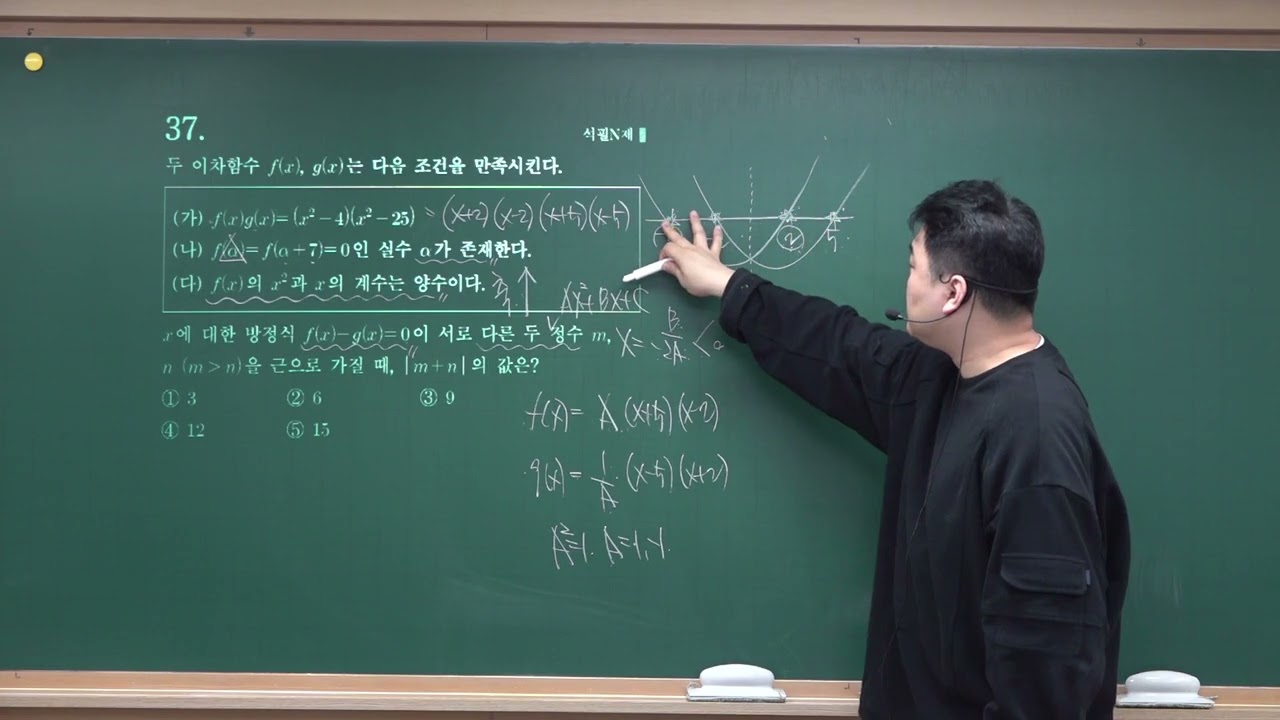 37.
식필N제
두 이차함수 f(x), g(x)는 다음 조건을 만족시킨다.
(가) f(x)g(x)=(x²-4)(x²-25) = (x+2)(x-2)(x+5)(x-5)
(나) f(α)=f(α+7)=0인 실수 α가 존재한다.
(다) f(x)의 x²과 x의 계수는 양수이다.
Ax²+Bx+C
x에 대한 방정식 f(x)-g(x)=0이 서로 다른 두 정수 m,
n (m>n)을 근으로 가질 때, |m+n|의 값은?
x=-B/2A <0
① 3 ② 6 ③ 9
④ 12 ⑤ 15
2 5
f(x)= A(x+5)(x-2)
g(x)= 1/A (x-5)(x+2)